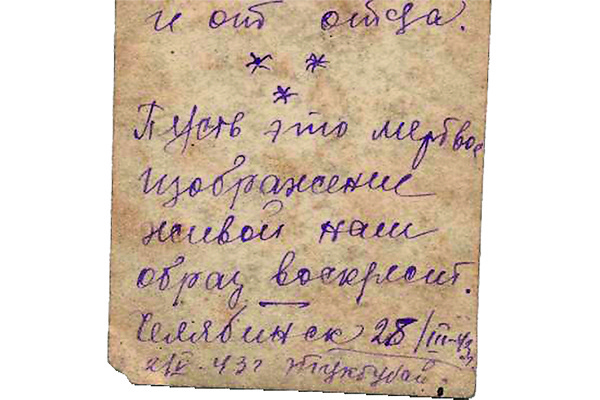 и от отца.
* *
*
Пусть это мертвое
изображение
живой наш
образ воскресит.
Челябинск 28/III-43 г.
2/IV-43 г